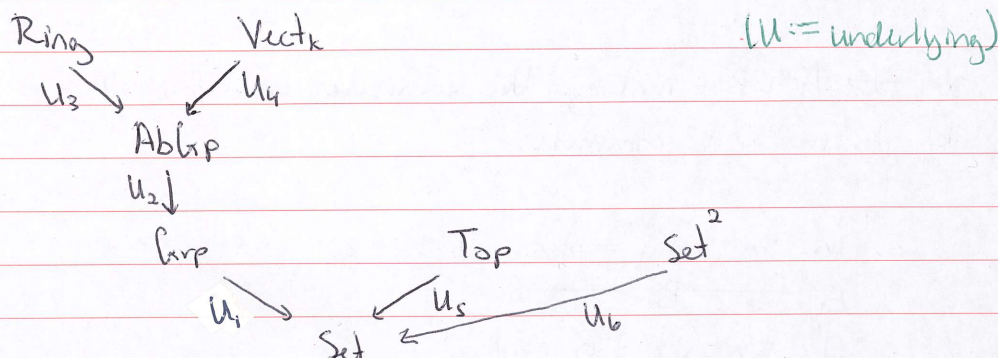 Ring Vectₖ (U := underlying)
U₃ U₄
AbGrp
U₂
Grp Top Set²
U₁ U₅ U₆
Set